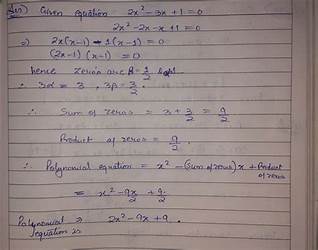 Given equation 2x² - 3x + 1 = 0
2x² - 2x - x + 1 = 0
⇒) 2x(x-1) - 1(x-1) = 0
(2x-1) (x-1) = 0
hence zero's are β = 1/2
∴ 3α = 3 , 3β = 3/2
∴ Sum of zeros = 3 + 3/2 = 9/2
Product of zeros = 9/2
∴ Polynomial equation = x² - (Sum of zeros) x + Product of zeros
= x² - 9x/2 + 9/2
Polynomial ⇒ 2x² - 9x + 9 .
equation is